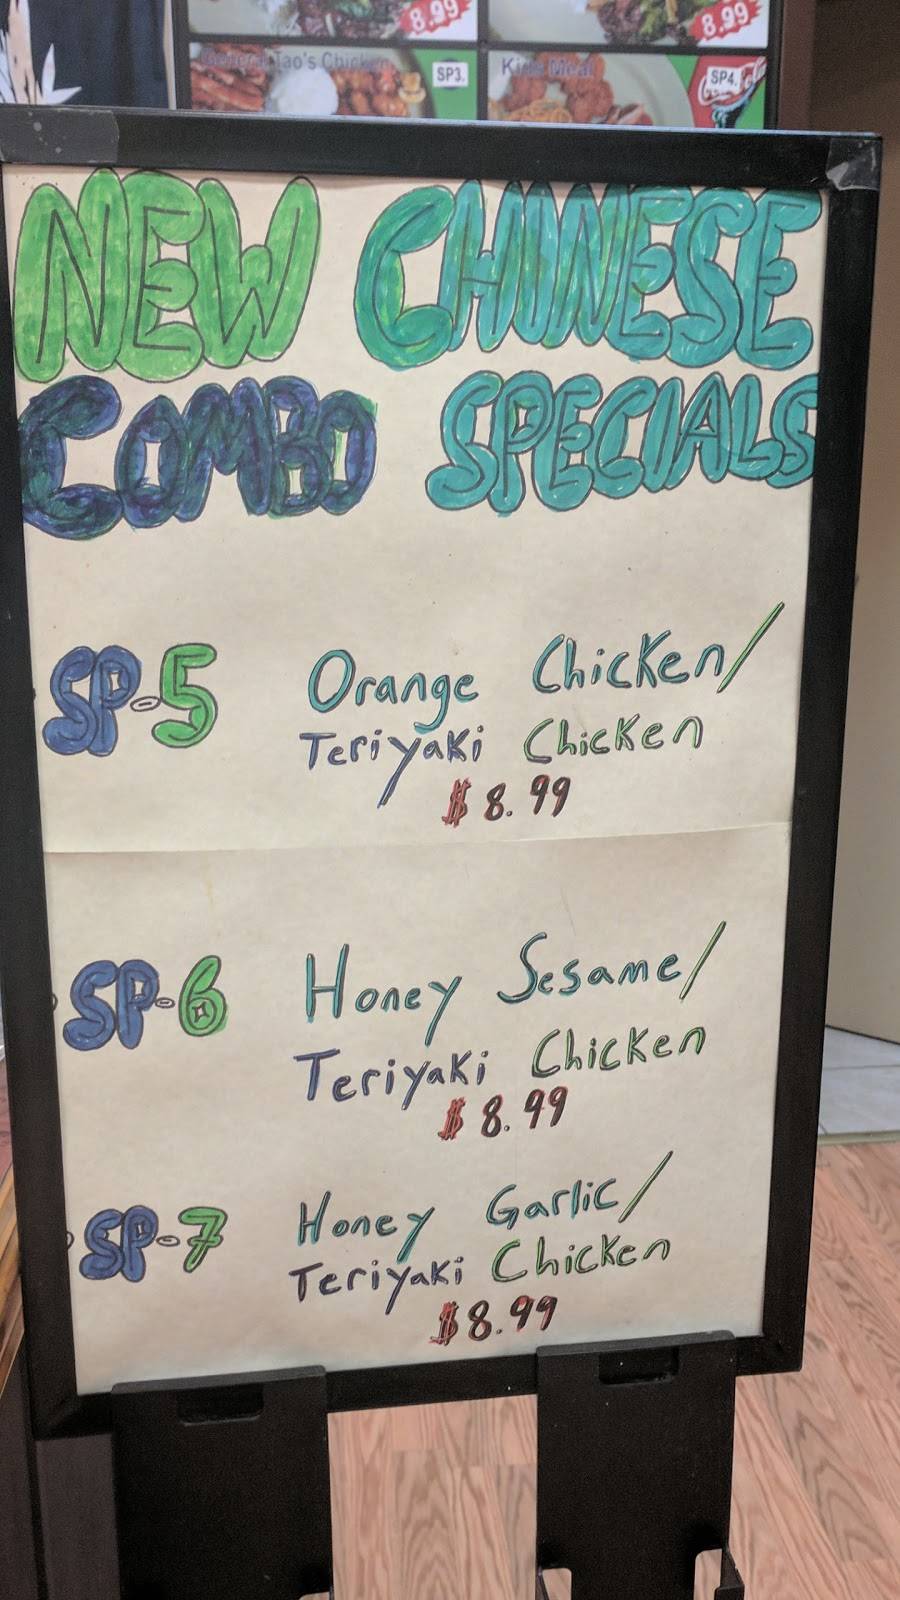 8.99
8.99
General Tao's Chicken
SP3.
Kids Meal
SP4.
NEW CHINESE
COMBO SPECIALS
SP-5 Orange Chicken/
Teriyaki Chicken
$8.99
SP-6 Honey Sesame/
Teriyaki Chicken
$8.99
SP-7 Honey Garlic/
Teriyaki Chicken
$8.99